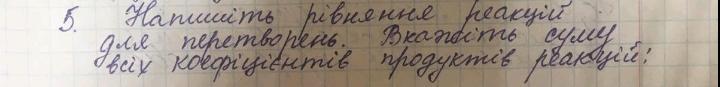 5. Напишіть рівняння реакцій
для перетворень. Вкажіть суму
всіх коефіцієнтів продуктів реакцій: